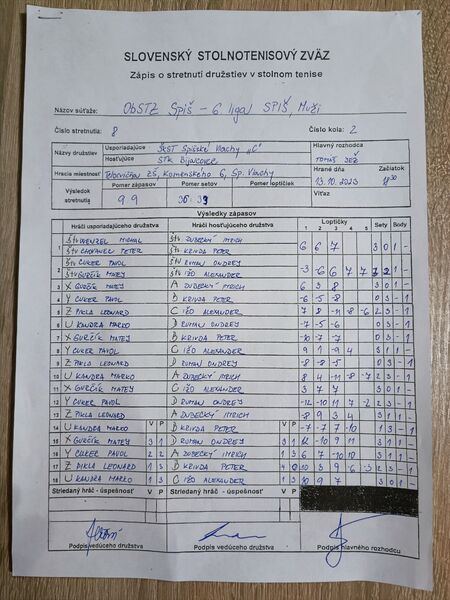 SLOVENSKÝ STOLNOTENISOVÝ ZVÄZ
Zápis o stretnutí družstiev v stolnom tenise
Názov súťaže: ObSTZ Spiš – 6. liga SPIŠ, Muži
Číslo stretnutia: 8 Číslo kola: 2
Názvy družstiev Usporiadajúce ŠKST Spišské Vlachy „C" Hlavný rozhodca
Hosťujúce STK Bijacovce TOMÁŠ JEŽ
Hracia miestnosť Telocvičňa ZŠ, Komenského 6, Sp. Vlachy Hrané dňa 13.10.2023 Začiatok 18 30
Výsledok stretnutia Pomer zápasov 9 9 Pomer setov Pomer loptičiek Víťaz
Výsledky zápasov
Hráči usporiadajúceho družstva Hráči hosťujúceho družstva Loptičky Sety Body
1 2 3 4 5
1 Štv WENZEL MICHAL Štv DUBECKÝ IMRICH 6 6 7 3 0 1 –
Štv CHOVANEC PETER Štv KRIVDA PETER
2 Štv CUKER PAVOL Štv RUMAN ONDREJ
Štv GURČÍK MATEJ Štv CIŽO ALEXANDER
3 X GURČÍK MATEJ A DUBECKÝ IMRICH 6 3 8 3 0 1 –
4 Y CUKER PAVOL B KRIVDA PETER -6 -5 -8 0 3 – 1
5 Z PIKLA LEONARD C CIŽO ALEXANDER 7 8 -11 -8 -6 2 3 – 1
6 U KANDRA MARKO D RUMAN ONDREJ -7 -5 -6 0 3 – 1
7 X GURČÍK MATEJ B KRIVDA PETER -10 -7 -7 0 3 – 1
8 Y CUKER PAVOL C CIŽO ALEXANDER
9 Z PIKLA LEONARD D RUMAN ONDREJ
10 U KANDRA MARKO A DUBECKÝ IMRICH
11 X GURČÍK MATEJ C CIŽO ALEXANDER 3 7 7 3 0 1 –
12 Y CUKER PAVOL D RUMAN ONDREJ
13 Z PIKLA LEONARD A DUBECKÝ IMRICH -8 9 3 4 3 1 1 –
14 U KANDRA MARKO V P B KRIVDA PETER V P -7 -7 7 -10 1 3 – 1
15 X GURČÍK MATEJ 3 1 D RUMAN ONDREJ 3 1
16 Y CUKER PAVOL 2 2 A DUBECKÝ IMRICH 1 3
17 Z PIKLA LEONARD 1 3 B KRIVDA PETER 4 0
18 U KANDRA MARKO 1 3 C CIŽO ALEXANDER 1 3 10 9 7 3 0 1 –
Striedaný hráč - úspešnosť V P Striedaný hráč - úspešnosť V P
Podpis vedúceho družstva Podpis vedúceho družstva Podpis hlavného rozhodcu